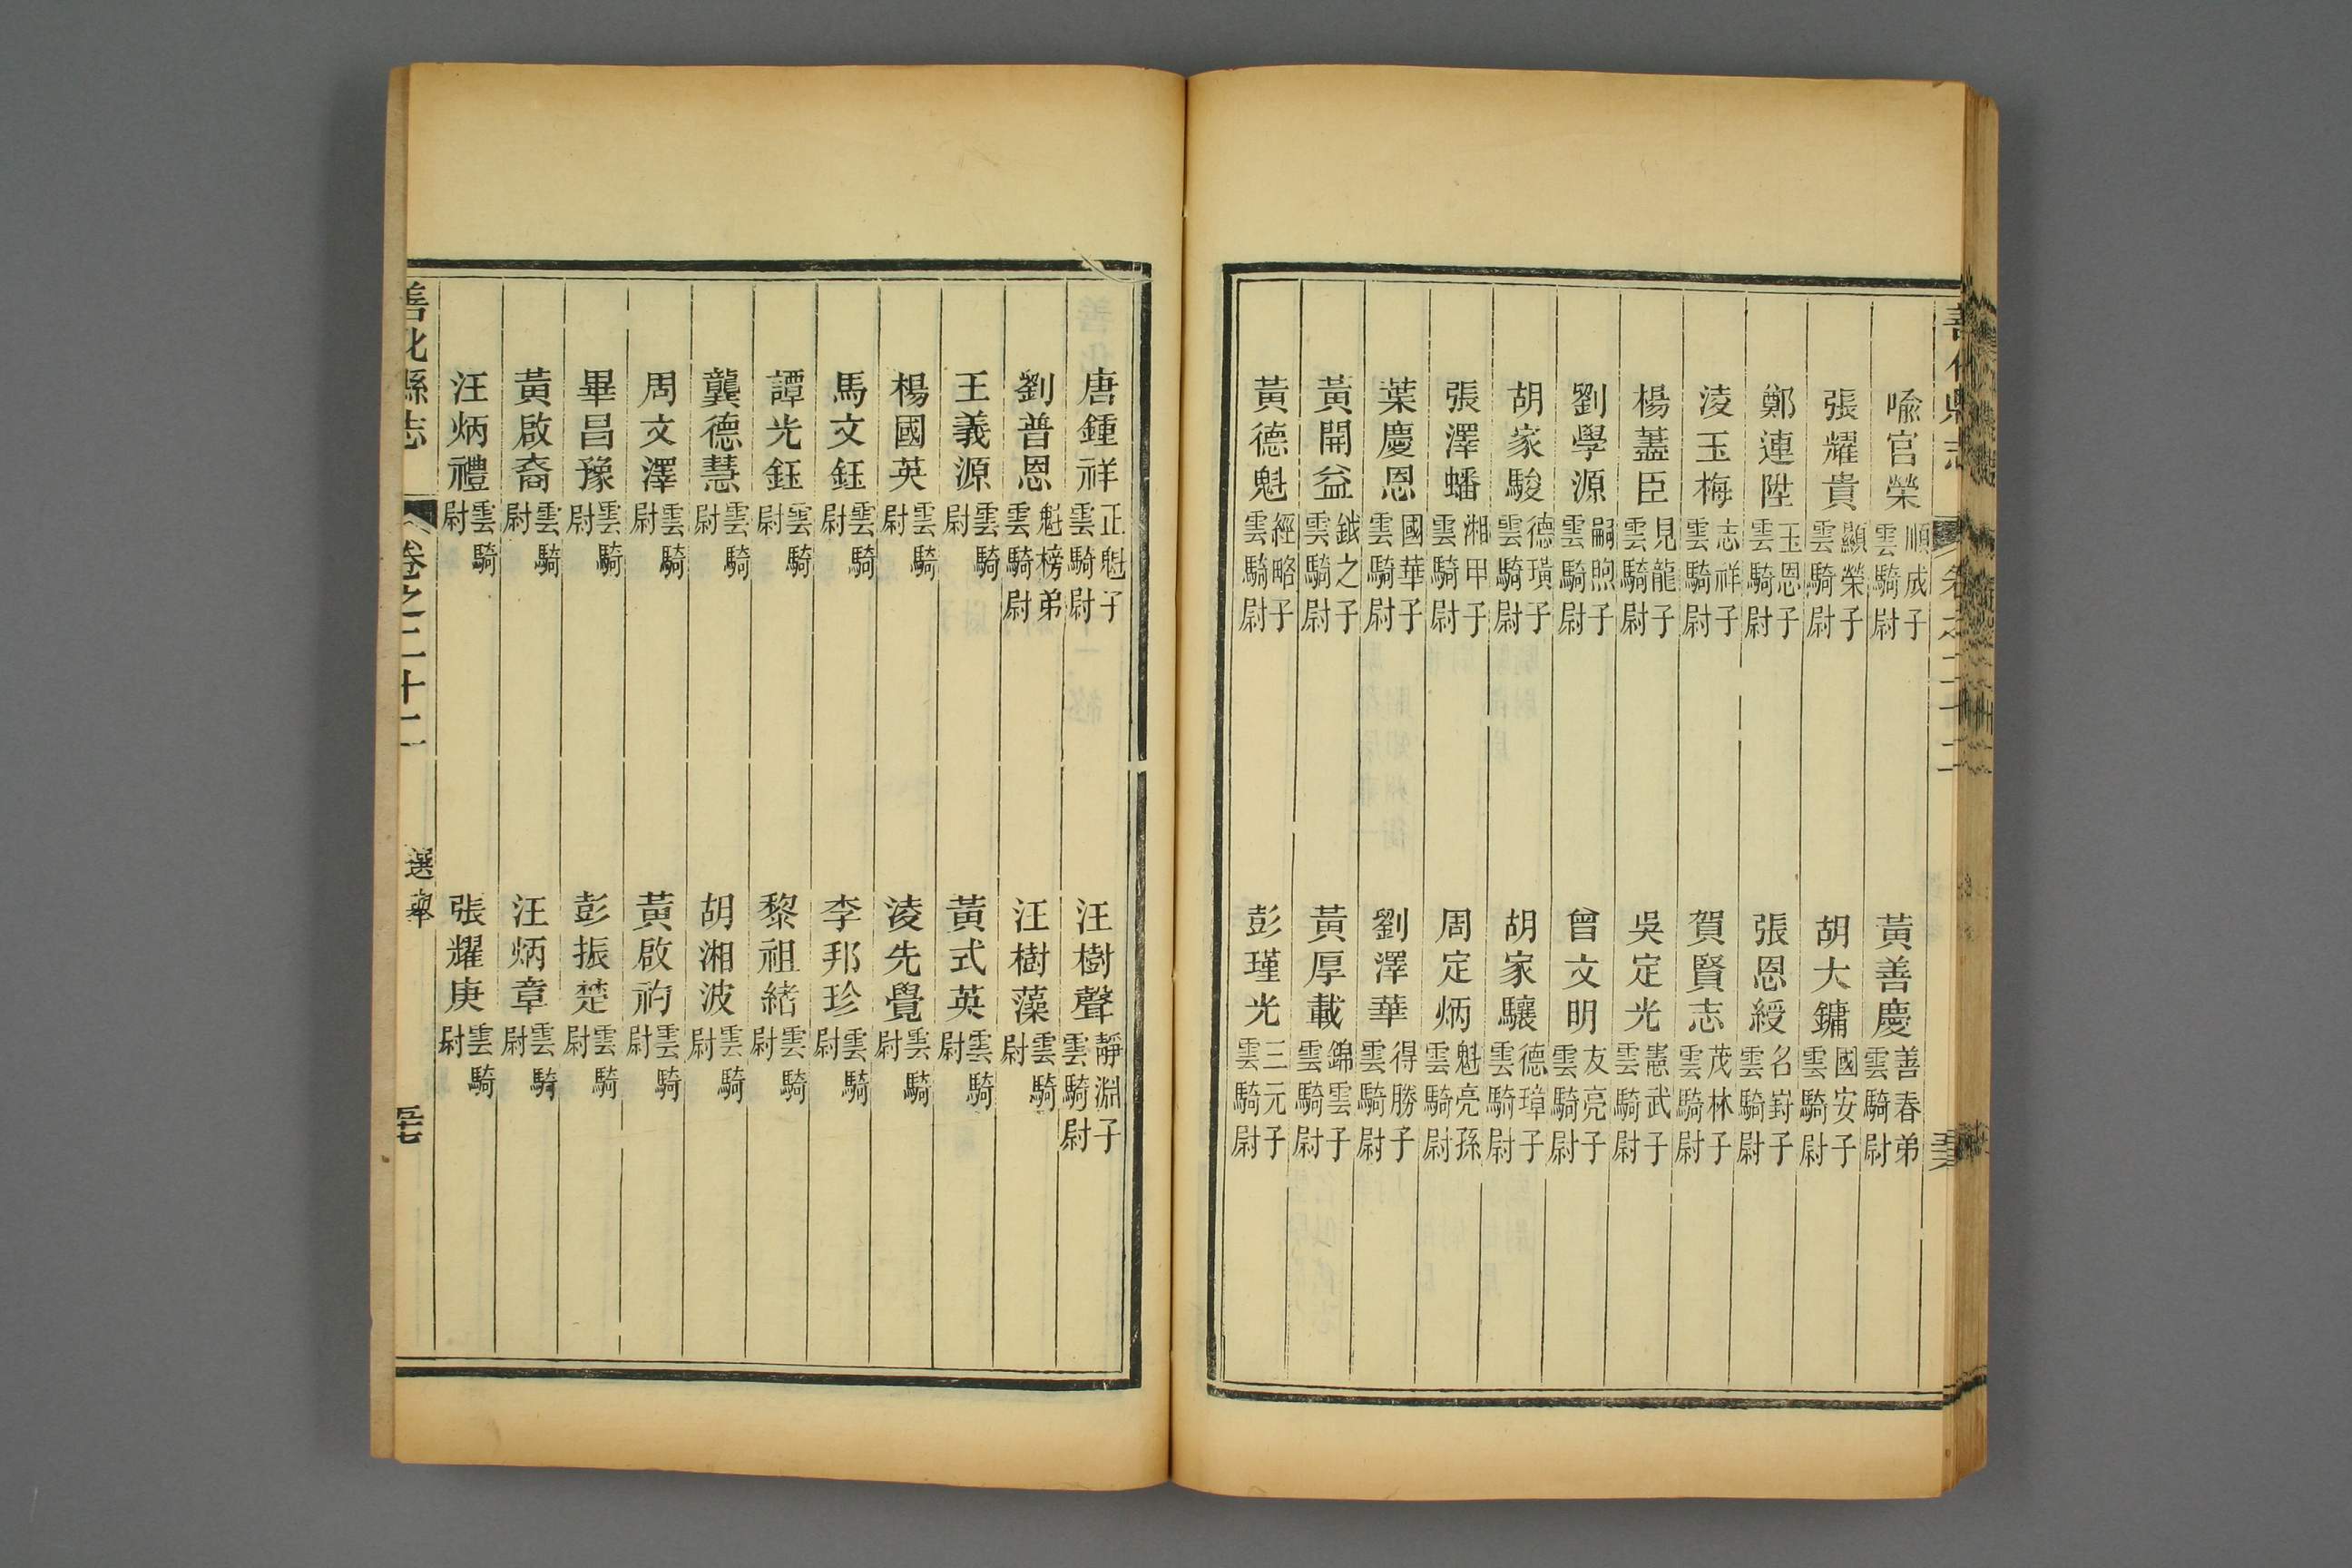 喩官榮 順成子雲騎尉 黃善慶 善春弟雲騎尉
張耀貴 顯榮子雲騎尉 胡大鏞 國安子雲騎尉
鄭連陞 玉恩子雲騎尉 張恩綬 名嵙子雲騎尉
淩玉梅 志祥子雲騎尉 賀賢志 茂林子雲騎尉
楊藎臣 見龍子雲騎尉 吳定光 憲武子雲騎尉
劉學源 嗣煦子雲騎尉 曾文明 友亮子雲騎尉
胡家駿 德璜子雲騎尉 胡家驤 德璋子雲騎尉
張澤蟠 湘甲子雲騎尉 周定炳 魁亮孫雲騎尉
葉慶恩 國華子雲騎尉 劉澤華 得勝子雲騎尉
黃開益 鉞之子雲騎尉 黃厚載 錦雲子雲騎尉
黃德魁 經略子雲騎尉 彭瑾光 三元子雲騎尉
唐鍾祥 正魁子雲騎尉 汪樹聲 靜淵子雲騎尉
劉普恩 魁榜弟雲騎尉 汪樹藻 雲騎尉
王義源 雲騎尉 黃式英 雲騎尉
楊國英 雲騎尉 淩先覺 雲騎尉
馬文鈺 雲騎尉 李邦珍 雲騎尉
譚光鈺 雲騎尉 黎祖緒 雲騎尉
龔德慧 雲騎尉 胡湘波 雲騎尉
周文澤 雲騎尉 黃啟礿 雲騎尉
畢昌豫 雲騎尉 彭振楚 雲騎尉
黃啟裔 雲騎尉 汪炳章 雲騎尉
汪炳禮 雲騎尉 張耀庚 雲騎尉
善化縣志 卷之二十二 選舉 五十七